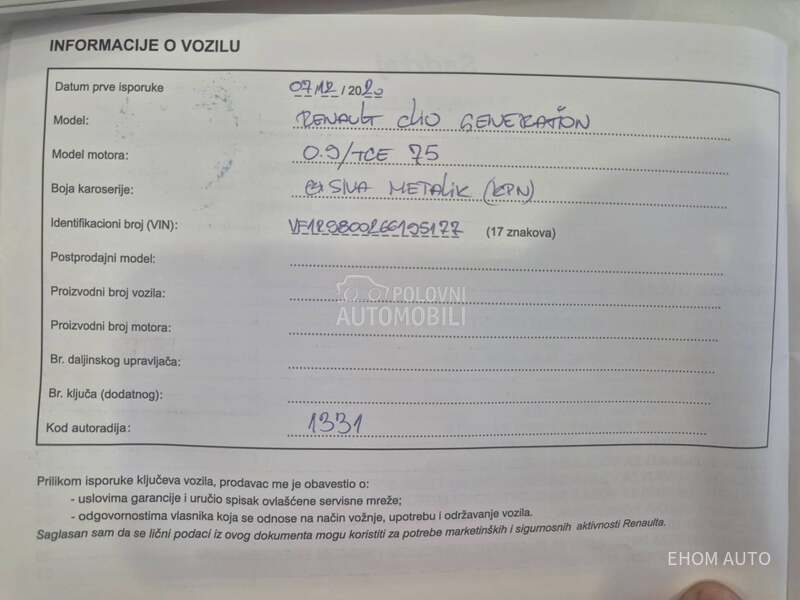 INFORMACIJE O VOZILU
Datum prve isporuke 07/12/2020
Model: RENAULT CLIO GENERATION
Model motora: 0.9/TCE 75
Boja karoserije: SIVA METALIK (KPN)
Identifikacioni broj (VIN): VF129800266195177 (17 znakova)
Postprodajni model:
Proizvodni broj vozila:
Proizvodni broj motora:
Br. daljinskog upravljača:
Br. ključa (dodatnog):
Kod autoradija: 1331
POLOVNI
AUTOMOBILI
Prilikom isporuke ključeva vozila, prodavac me je obavestio o:
- uslovima garancije i uručio spisak ovlašćene servisne mreže;
- odgovornostima vlasnika koja se odnose na način vožnje, upotrebu i održavanje vozila.
Saglasan sam da se lični podaci iz ovog dokumenta mogu koristiti za potrebe marketinških i sigurnosnih aktivnosti Renaulta.
EHOM AUTO